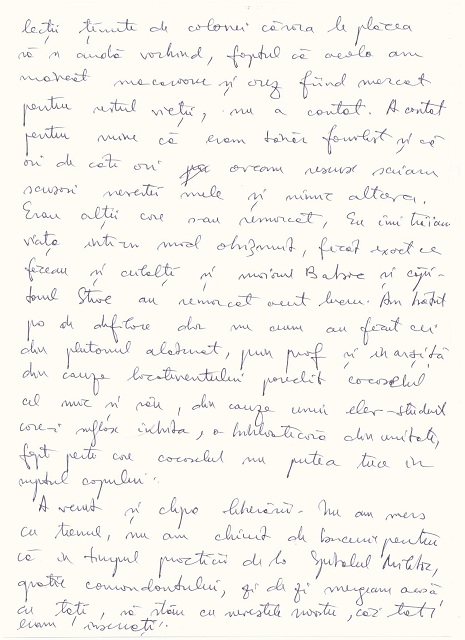 lecții ținute de colonei cărora le plăcea
să se audă vorbind, faptul că acolo am
mâncat macaroane și orez fiind marcat
pentru restul vieții, nu a contat. A contat
pentru mine că eram tânăr și că
ori de câte ori aveam resurse scriam
scrisori nevestei mele și nimic altceva.
Erau alții care s-au remarcat, Eu îmi trăiam
viața într-un mod obișnuit, făcut exact ce
făceau și ceilalți și maiorul și căpi-
tanul au remarcat acest lucru. Am bătut
pas de defilare dar nu cum au făcut cei
din plutonul alăturat, prin praf și în arșiță
din cauza locotenentului poreclit cocoșelul
cel mic și rău, din cauza unui elev-student
care-i iubita, o bibliotecară din unitate,
fapt peste care cocoșelul nu putea trece în
ruptul capului.
A venit și clipa liberării. Nu am mers
cu trenul, nu am chiuit de bucurie pentru
că în timpul practicii de la Spitalul Militar,
grație comandantului, zi de zi mergeam acasă
cu toții, să stăm cu nevestele noastre, căci toți
eram însurați.